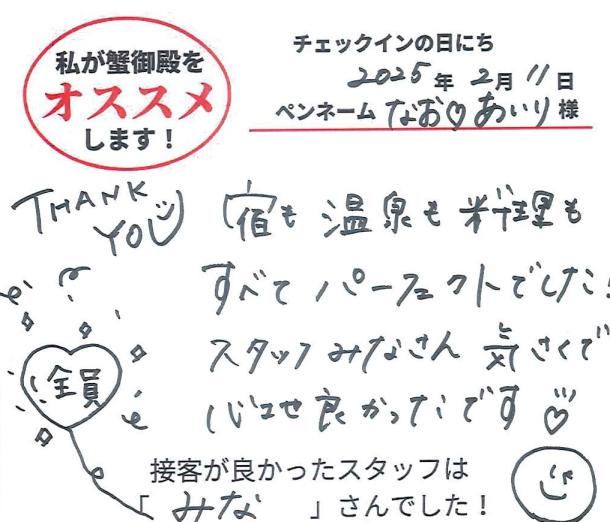 私が蟹御殿を
オススメ
します！
チェックインの日にち
2025年 2月 11日
ペンネーム なお♡あいり 様
THANK
YOU
宿も 温泉も 料理も
すべて パーフェクトでした!
スタッフ みなさん 気さくで
心地良かったです ♡
全員
接客が良かったスタッフは
「 みな 」さんでした！